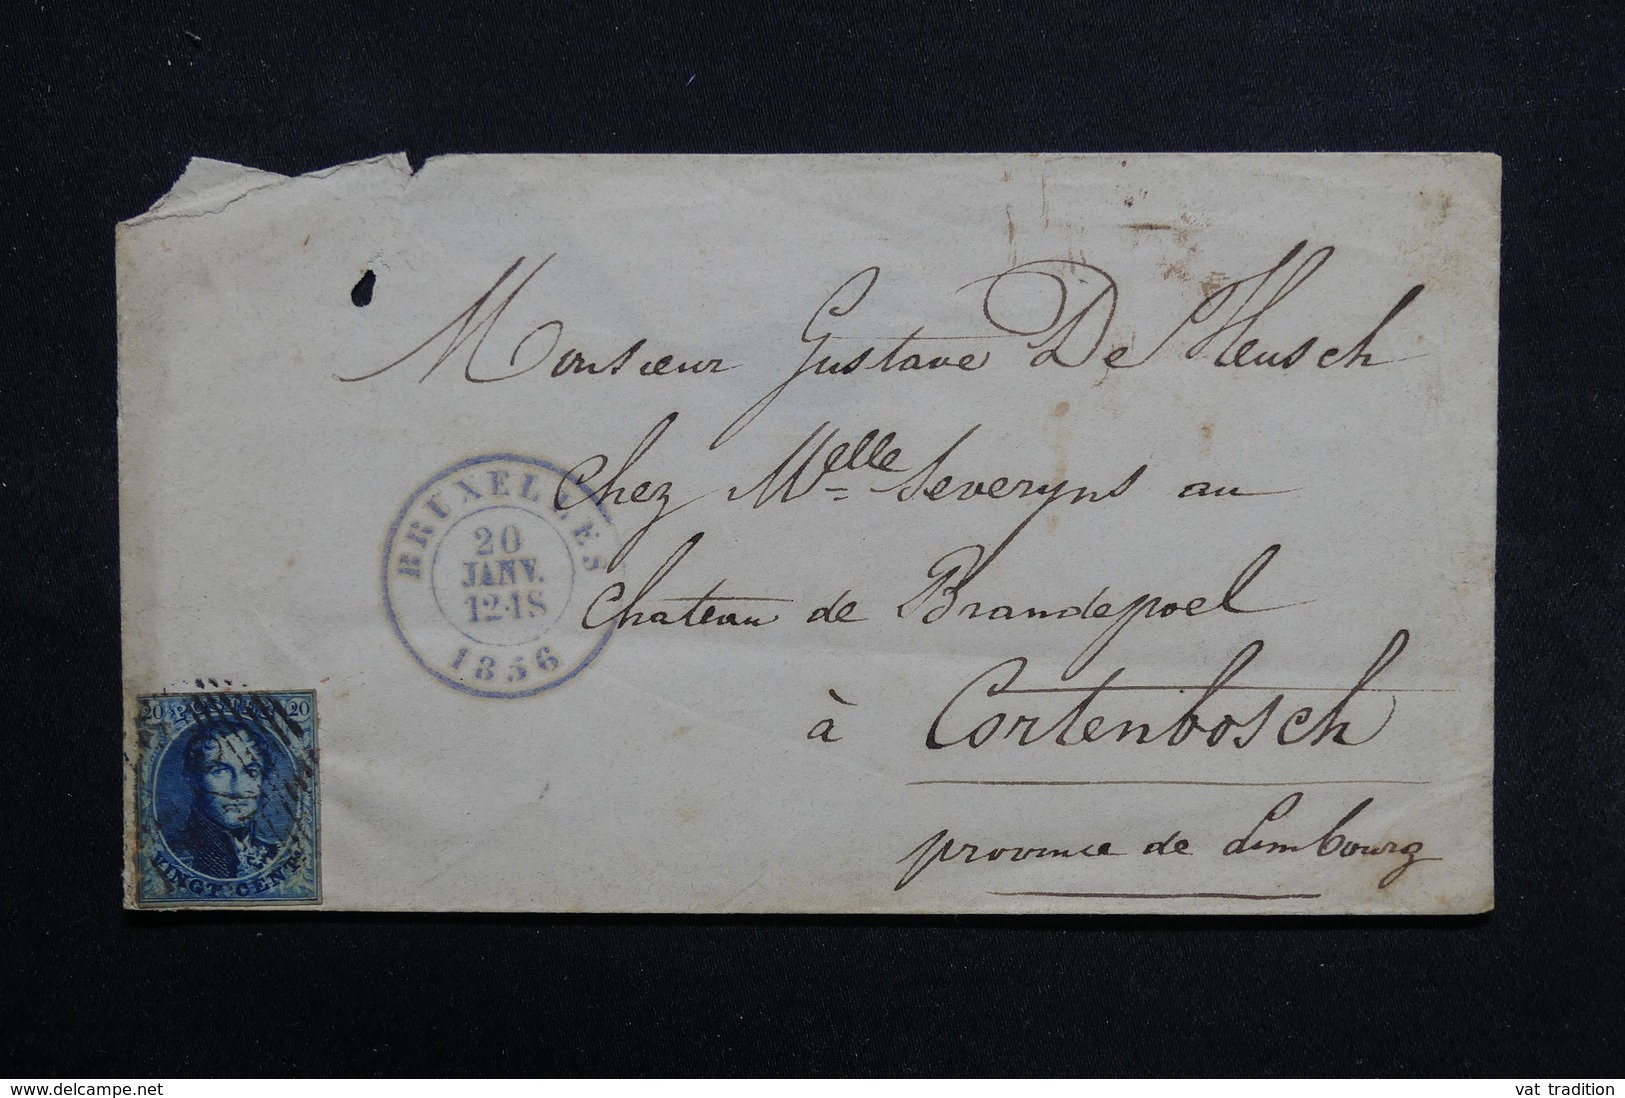 Monsieur Gustave De Heusch
chez Melle Severyns au
chateau de Brandepoel
à Cortenbosch
province de Limbourg
BRUXELLES
20
JANV.
12-1S
1856
20 20
VINGT CENTS
www.delcampe.net
vat tradition